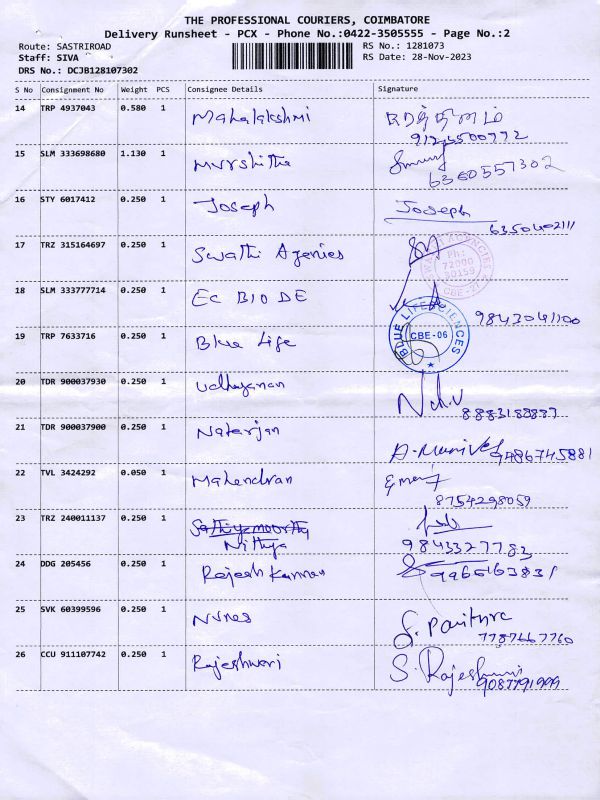 THE PROFESSIONAL COURIERS, COIMBATORE
Delivery Runsheet - PCX - Phone No.:0422-3505555 - Page No.:2
Route: SASTRIROAD
RS No.: 1281073
Staff: SIVA
RS Date: 28-Nov-2023
DRS No.: DCJB128107302
S No Consignment No Weight PCS Consignee Details Signature
14 TRP 4937043 0.580 1 Mahalakshmi
15 SLM 333698680 1.130 1 Murshitha
6360557302
16 STY 6017412 0.250 1 Joseph Joseph
6350402111
17 TRZ 315164697 0.250 1 Swathi Agenies
Ph: 72000 30159
18 SLM 333777714 0.250 1 Ec BIO DE
9843041100
19 TRP 7633716 0.250 1 Blue Life
BLUE LIFE SCIENCES CBE-06
20 TDR 900037930 0.250 1 Udhayanan
8883188887
21 TDR 900037900 0.250 1 Naterjan
9486745881
22 TVL 3424292 0.050 1 Mahendran
8754298059
23 TRZ 240011137 0.250 1 Sathiyamoorthy
Nithya
9843327783
24 DDG 205456 0.250 1 Rajesh Kumar
25 SVK 60399596 0.250 1
7787667760
26 CCU 911107742 0.250 1 Rajeshwari S. Rajeshwari
9087791999